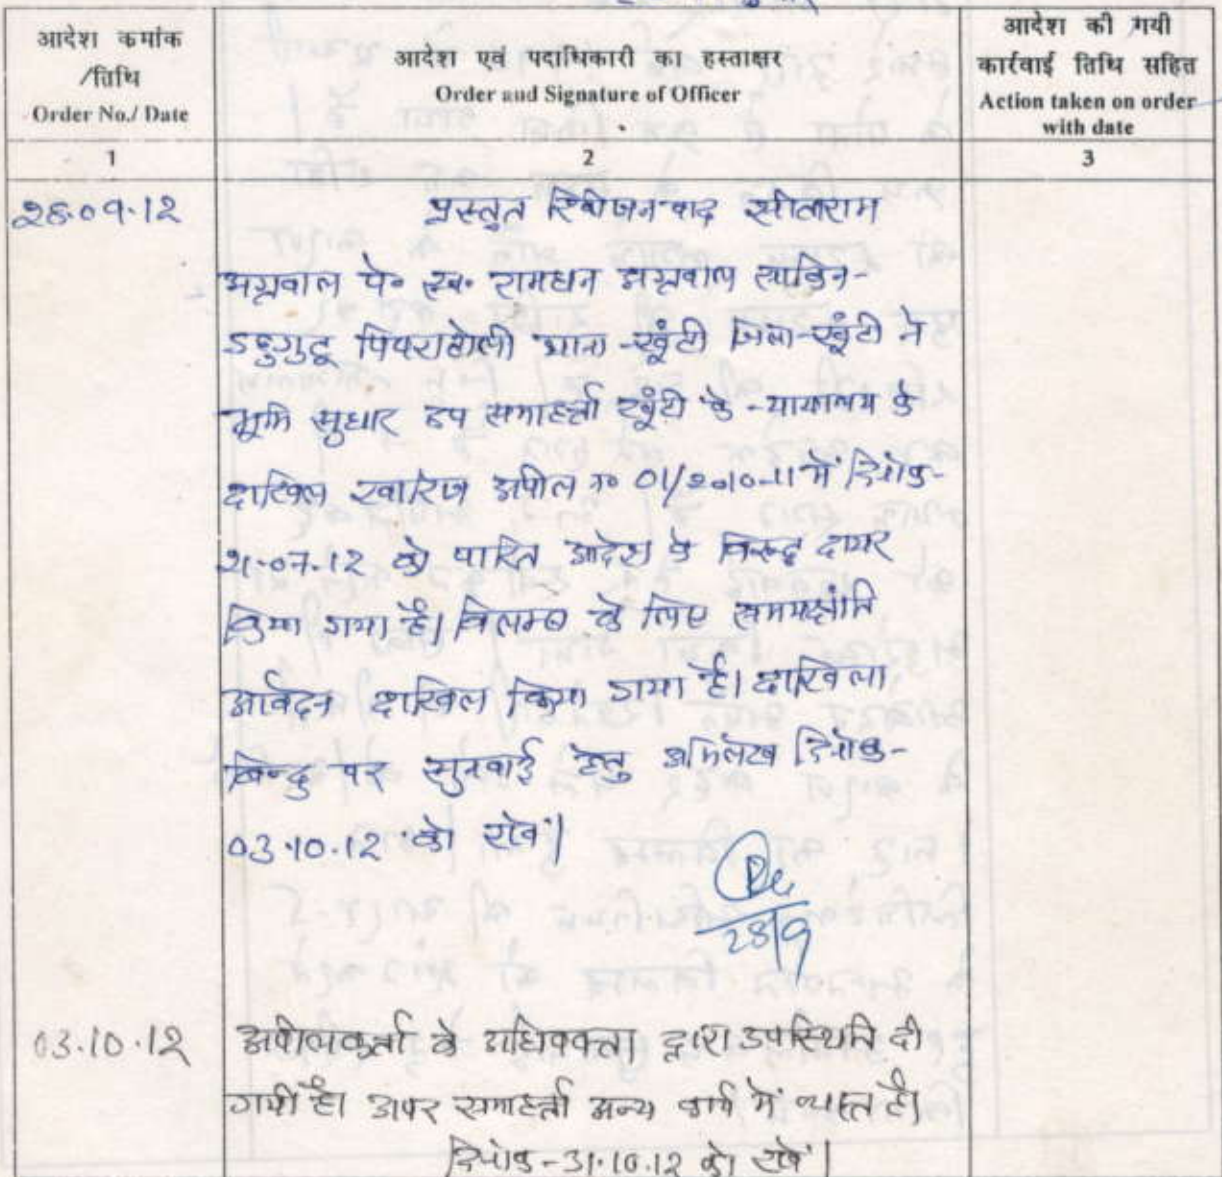 आदेश कमांक
/तिथि
Order No./ Date
आदेश एवं पदाधिकारी का हस्ताक्षर
Order and Signature of Officer
आदेश की गयी
कार्रवाई तिथि सहित
Action taken on order
with date
1
2
3
28.09.12
प्रस्तुत रिवीजन वाद सीताराम
अग्रवाल पे॰ स्व॰ रामधन अग्रवाल साकिन-
पिपराटोली थाना-खूंटी जिला-खूंटी ने
भूमि सुधार उप समाहर्ता खूंटी के न्यायालय के
दाखिल खारिज अपील नं० 01/2010-11 में दिनांक-
21.07.12 को पारित आदेश के विरूद्ध दायर
किया गया है। विलम्ब के लिए समयक्षांति
आवेदन दाखिल किया गया है। दाखिला
बिन्दु पर सुनवाई हेतु अभिलेख दिनांक-
03.10.12 को रखें।
28/9
03.10.12
अपीलकर्ता के अधिवक्ता द्वारा उपस्थिति दी
गयी है। अपर समाहर्ता अन्य कार्य में व्यस्त है।
दिनांक-31.10.12 को रखें।